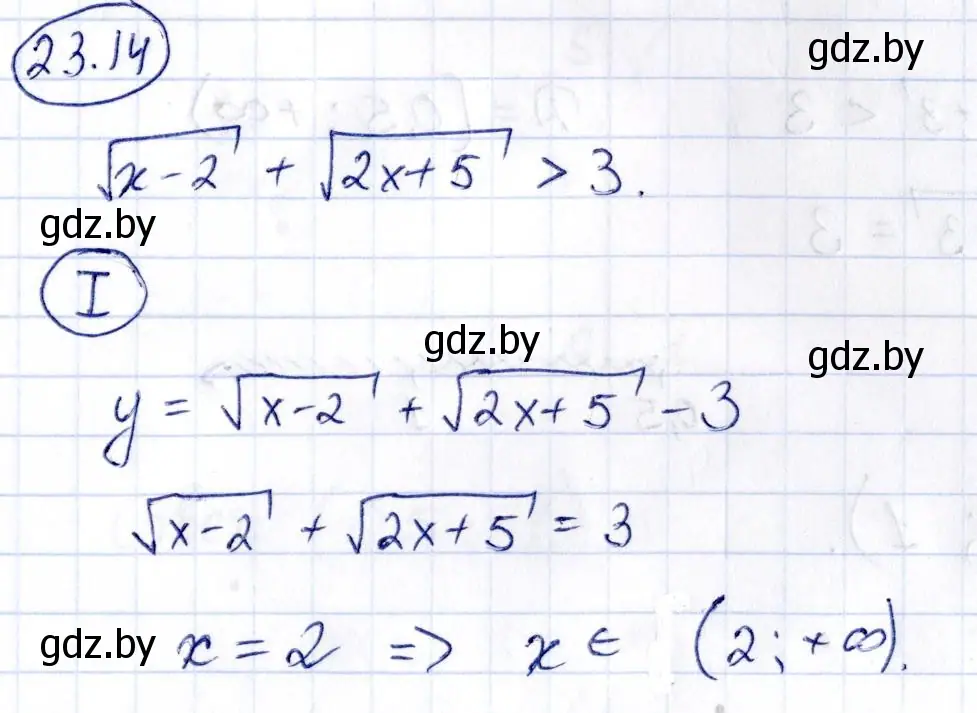 23.14
gdz.by
√(x-2) + √(2x+5) > 3.
gdz.by
I
gdz.by
gdz.by
y = √(x-2) + √(2x+5) - 3
√(x-2) + √(2x+5) = 3
gdz.by
x = 2 => x ∈ (2; +∞).